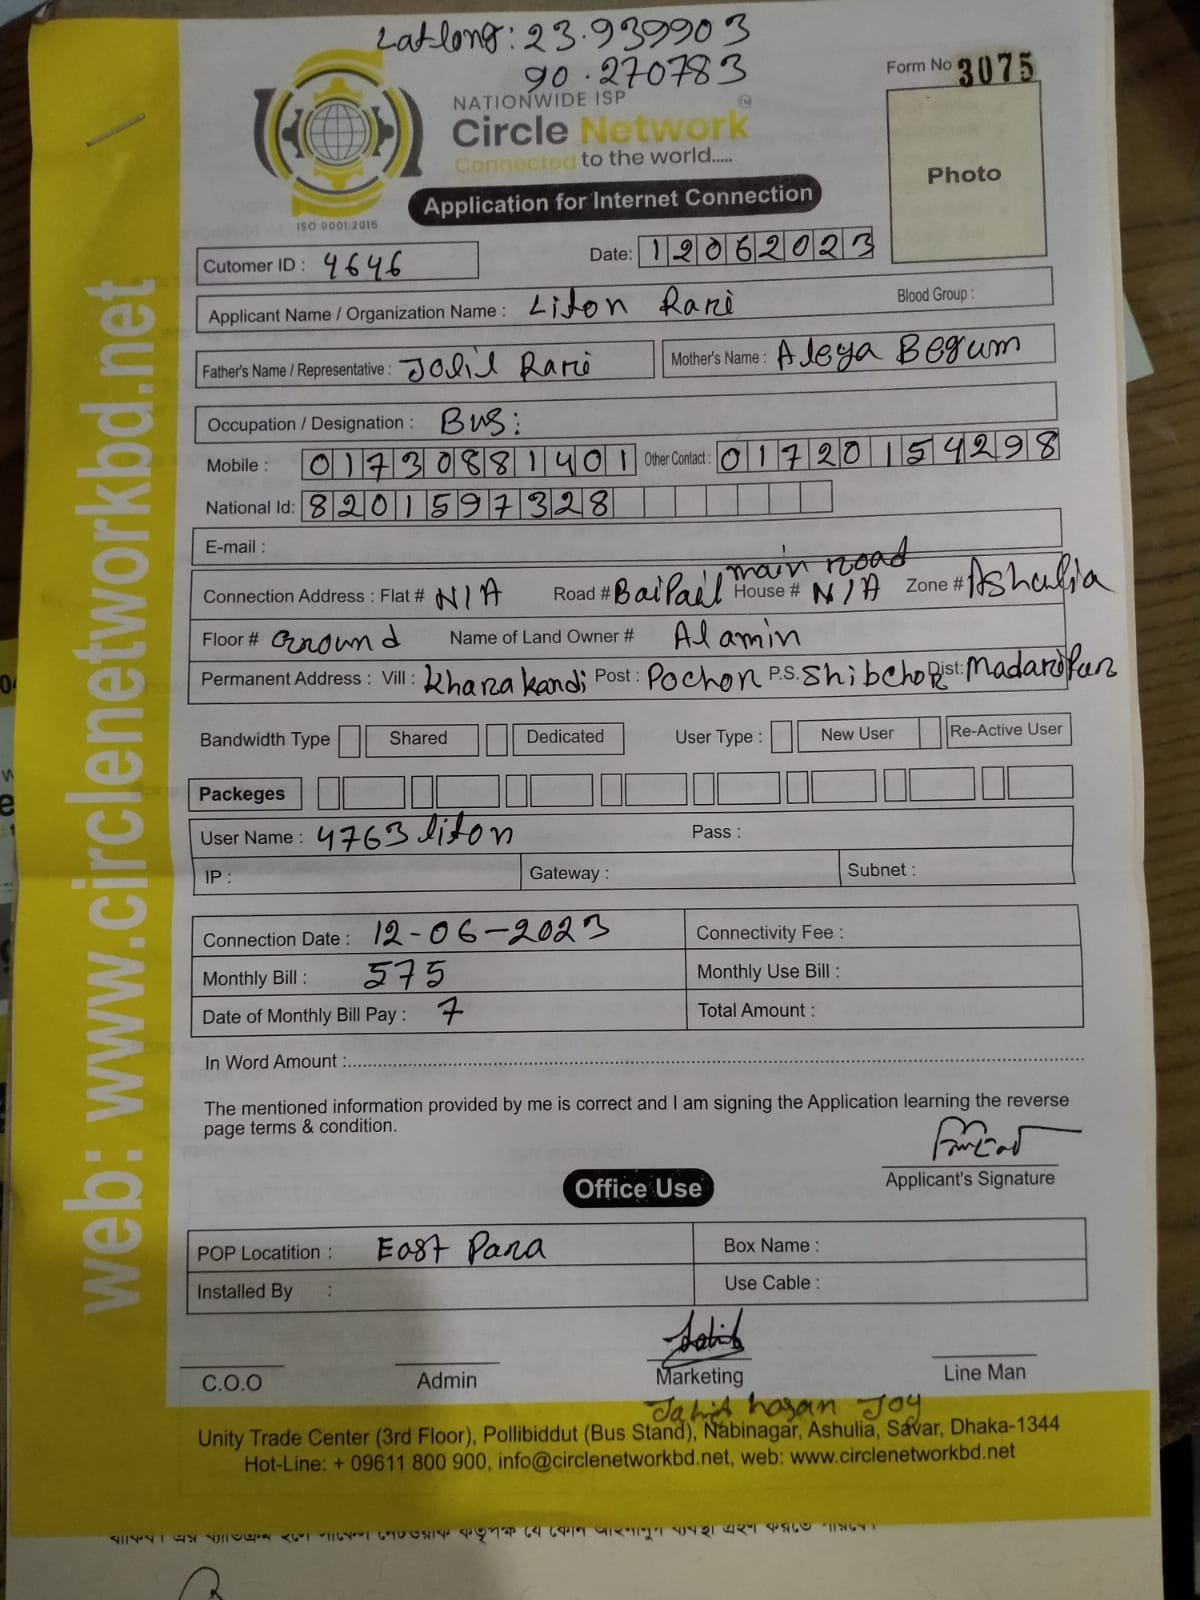 Lat-long: 23.939903
90.270783
Form No 3075
NATIONWIDE ISP
Circle Network
Connected to the world.....
ISO 9001:2015
Photo
Application for Internet Connection
Cutomer ID : 4646
Date: 12062023
Applicant Name / Organization Name : Liton Rari
Blood Group :
Father's Name / Representative : Jolil Rari
Mother's Name : Aleya Begum
Occupation / Designation : Bus:
Mobile : 01730881401 Other Contact : 01720154298
National Id: 8201597328
E-mail :
main road
Connection Address : Flat # N/A Road # Baipail House # N/A Zone # Ashulia
Floor # Ground Name of Land Owner # Alamin
Permanent Address : Vill : Kharakandi Post : Pochor P.S. Shibchor Dist: Madaripur
Bandwidth Type Shared Dedicated User Type : New User Re-Active User
Packeges
User Name : 4763liton Pass :
IP : Gateway : Subnet :
Connection Date : 12-06-2023 Connectivity Fee :
Monthly Bill : 575 Monthly Use Bill :
Date of Monthly Bill Pay : 7 Total Amount :
In Word Amount :
The mentioned information provided by me is correct and I am signing the Application learning the reverse
page terms & condition.
Applicant's Signature
Office Use
POP Locatition : East Para Box Name :
Installed By : Use Cable :
C.O.O Admin Marketing Line Man
Jahid hasan Joy
Unity Trade Center (3rd Floor), Pollibiddut (Bus Stand), Nabinagar, Ashulia, Savar, Dhaka-1344
Hot-Line: + 09611 800 900, info@circlenetworkbd.net, web: www.circlenetworkbd.net
web: www.circlenetworkbd.net